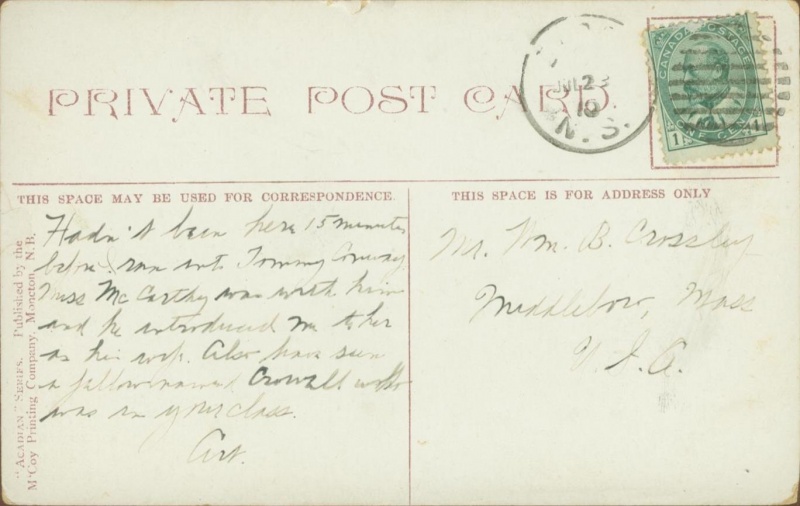 PRIVATE POST CARD.
JUL 23
10
N. S.
CANADA POSTAGE
1 ONE CENT 1
THIS SPACE MAY BE USED FOR CORRESPONDENCE.
THIS SPACE IS FOR ADDRESS ONLY
"ACADIAN" SERIES. Published by the
McCoy Printing Company, Moncton, N. B.
Hadn't been here 15 minutes
before I ran into Tommy Conway.
Miss McCarthy was with him
and he introduced me to her
as his wife. Also have seen
a fellow named Crowell who
was in your class.
Art.
Mr. Wm. B. Crossley
Middleboro, Mass
U. S. A.